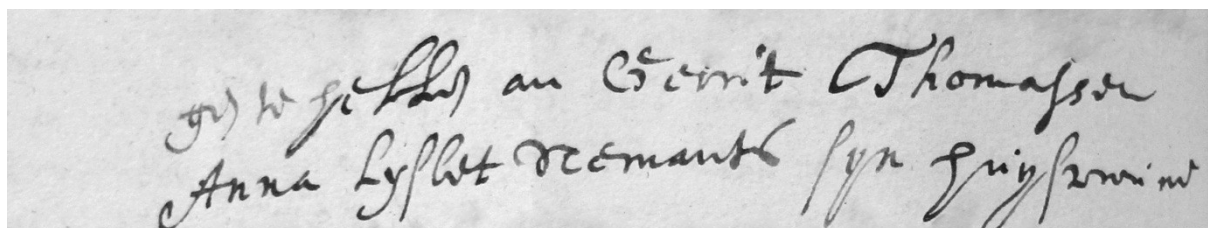 an Gerrit Thomassen
Anna Lyslet Nemants syn huysvrouw